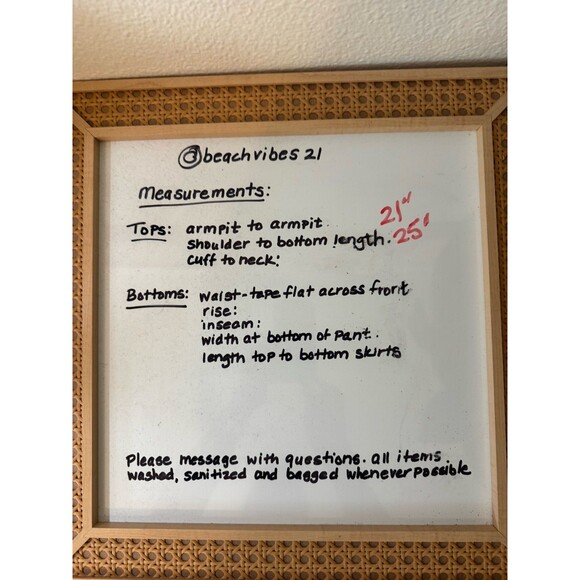 @beachvibes 21
Measurements:
Tops: armpit to armpit. 21"
shoulder to bottom length. 25"
cuff to neck:
Bottoms: waist-tape flat across front
rise:
inseam:
width at bottom of pant.
length top to bottom skirts
Please message with questions. all items
washed, sanitized and bagged whenever possible